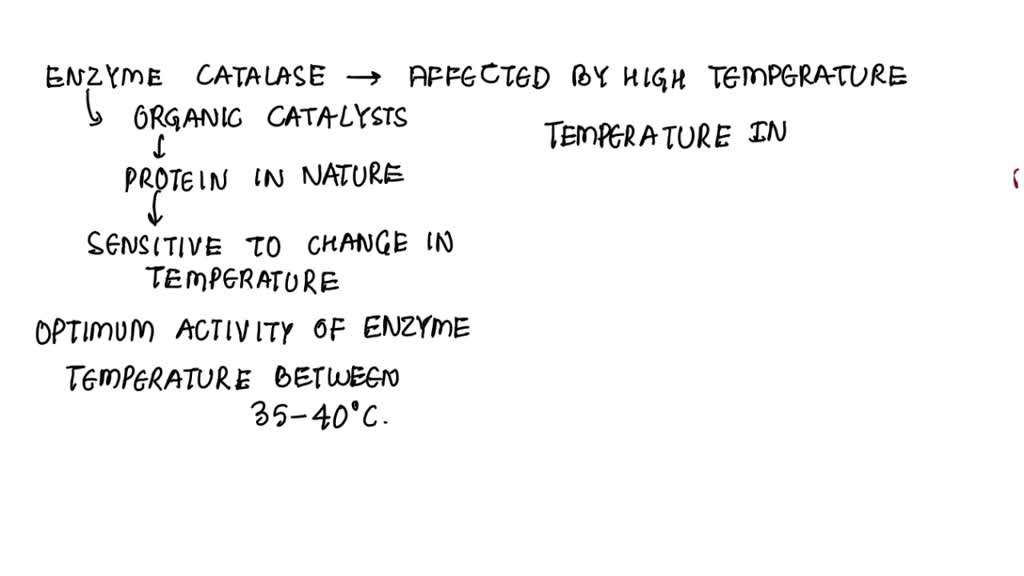 ENZYME CATALASE → AFFECTED BY HIGH TEMPERATURE
ORGANIC CATALYSTS
TEMPERATURE IN
PROTEIN IN NATURE
SENSITIVE TO CHANGE IN
TEMPERATURE
OPTIMUM ACTIVITY OF ENZYME
TEMPERATURE BETWEEN
35-40°C.